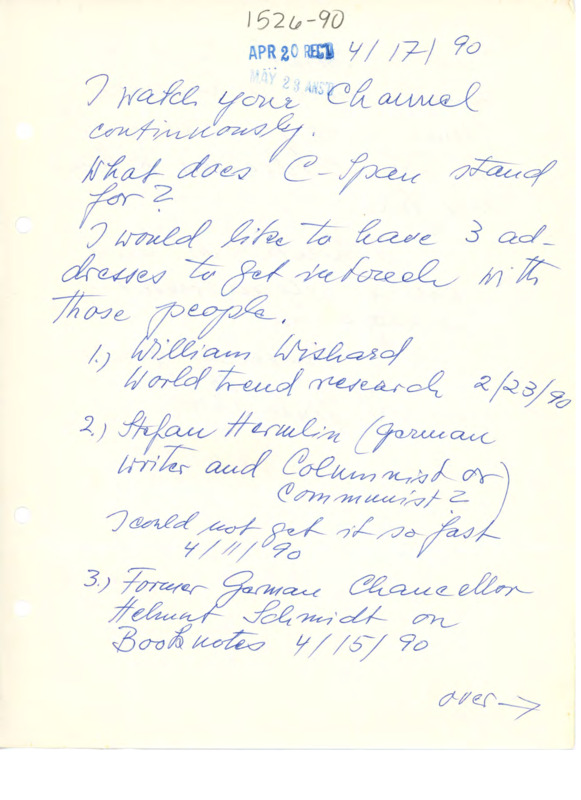 1526-90
APR 20 REC'D 4/17/90
MAY 23 ANS'D
I watch your Channel
continuously.
What does C-Span stand
for?
I would like to have 3 ad-
dresses to get intouch with
those people.
1.) William Wishard
World trend research 2/23/90
2.) Stefan Hermlin (german
writer and Columnist or)
Communist?
I could not get it so fast
4/11/90
3.) Former German Chancellor
Helmut Schmidt on
Booknotes 4/15/90
over →